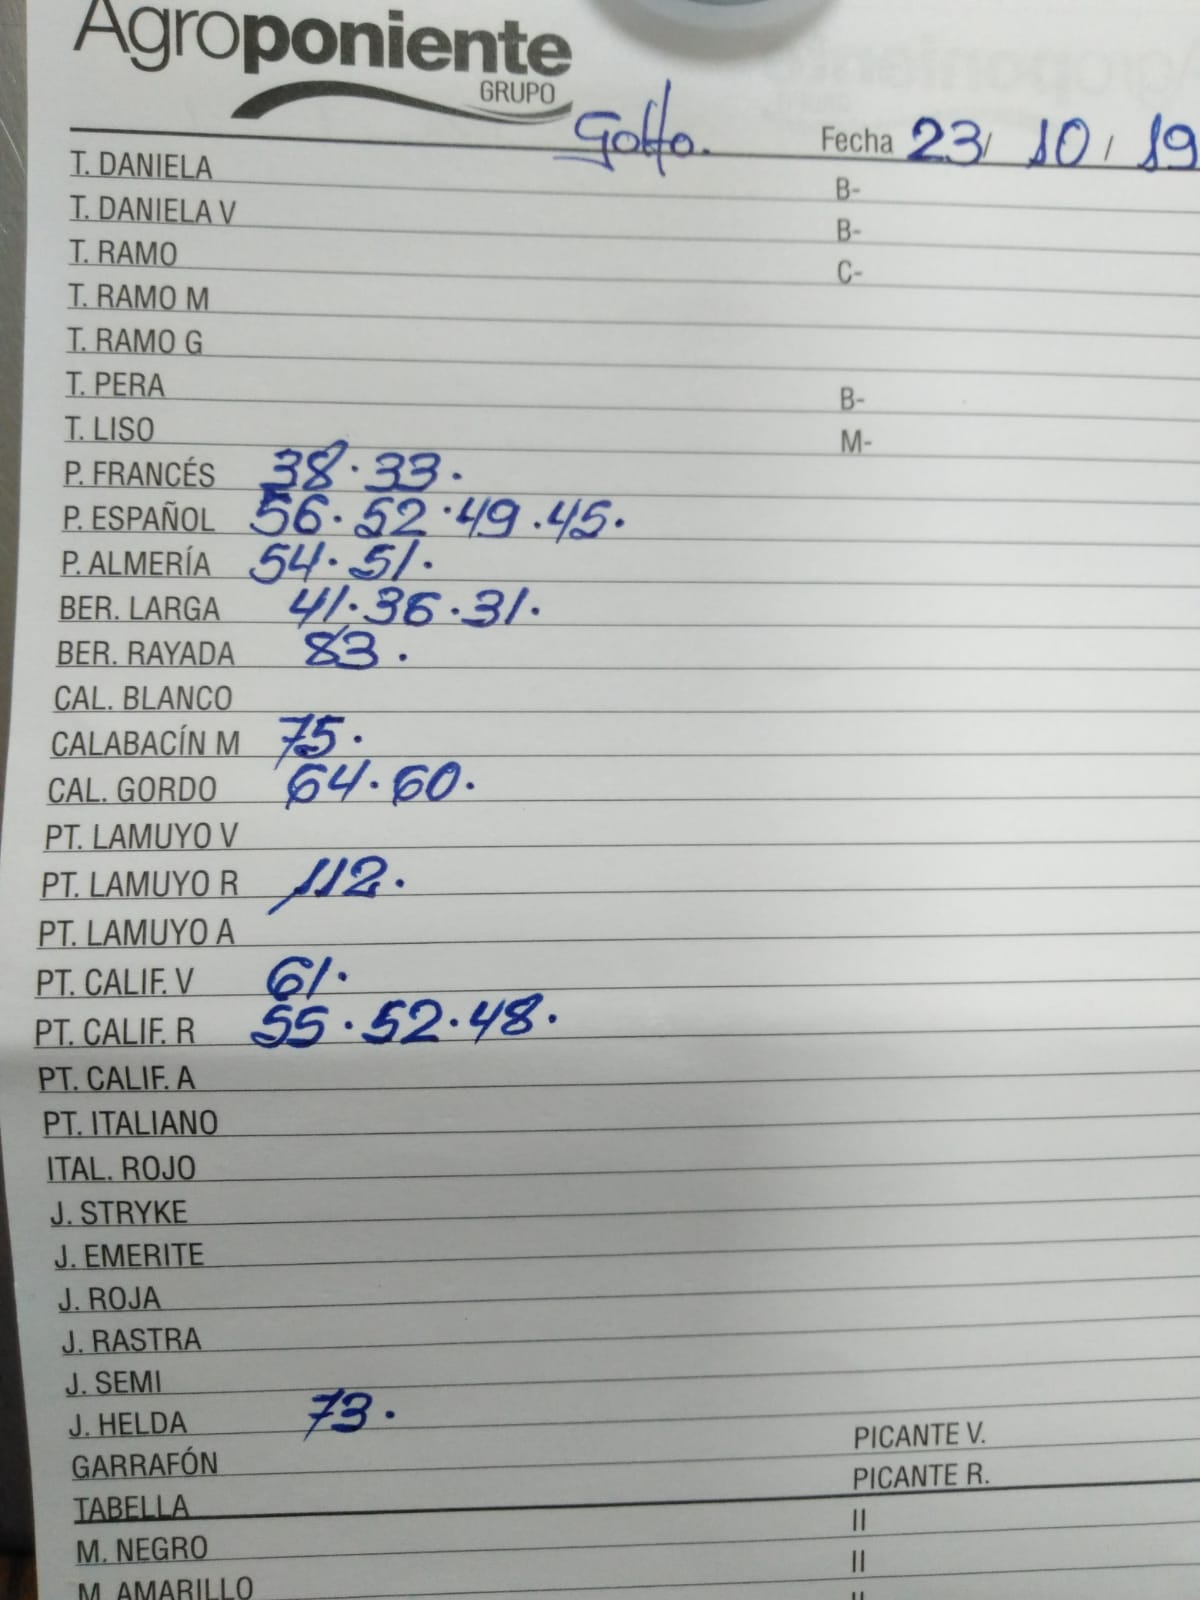 Agroponiente
GRUPO
Golfo. Fecha 23/ 10/ 19
T. DANIELA B-
T. DANIELA V B-
T. RAMO C-
T. RAMO M
T. RAMO G
T. PERA B-
T. LISO M-
P. FRANCÉS 38.33.
P. ESPAÑOL 56.52.49.45.
P. ALMERÍA 54.51.
BER. LARGA 41.36.31.
BER. RAYADA 83.
CAL. BLANCO
CALABACÍN M 75.
CAL. GORDO 64.60.
PT. LAMUYO V
PT. LAMUYO R 112.
PT. LAMUYO A
PT. CALIF. V 61.
PT. CALIF. R 55.52.48.
PT. CALIF. A
PT. ITALIANO
ITAL. ROJO
J. STRYKE
J. EMERITE
J. ROJA
J. RASTRA
J. SEMI
J. HELDA 73.
GARRAFÓN PICANTE V.
TABELLA PICANTE R.
M. NEGRO II
M. AMARILLO II
II